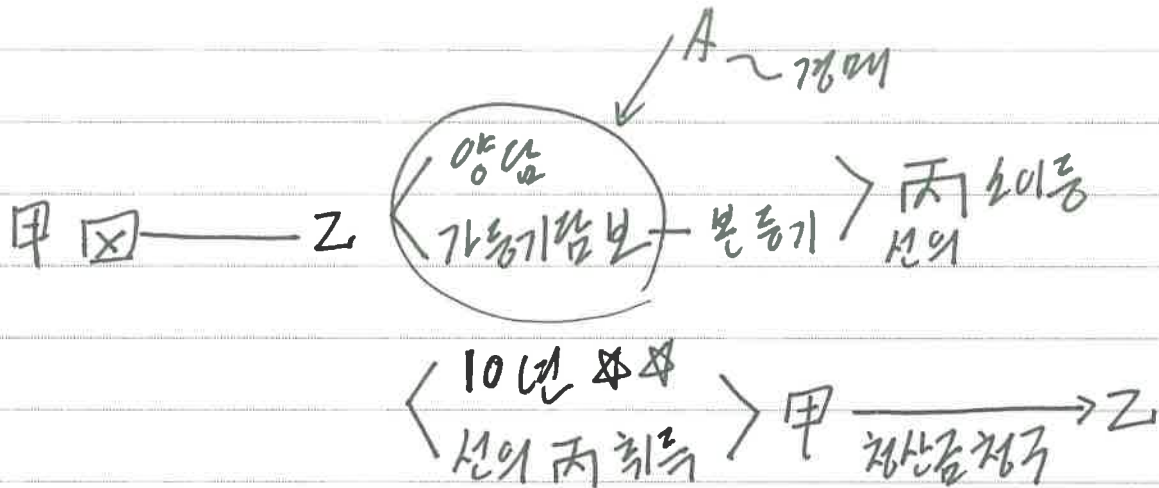 A ~ 경매
양담
甲 図 — 乙 가등기담보 — 본등기 丙 소이등
선의
10년 ☆☆
선의 丙 취득 甲 → 乙
청산금청구